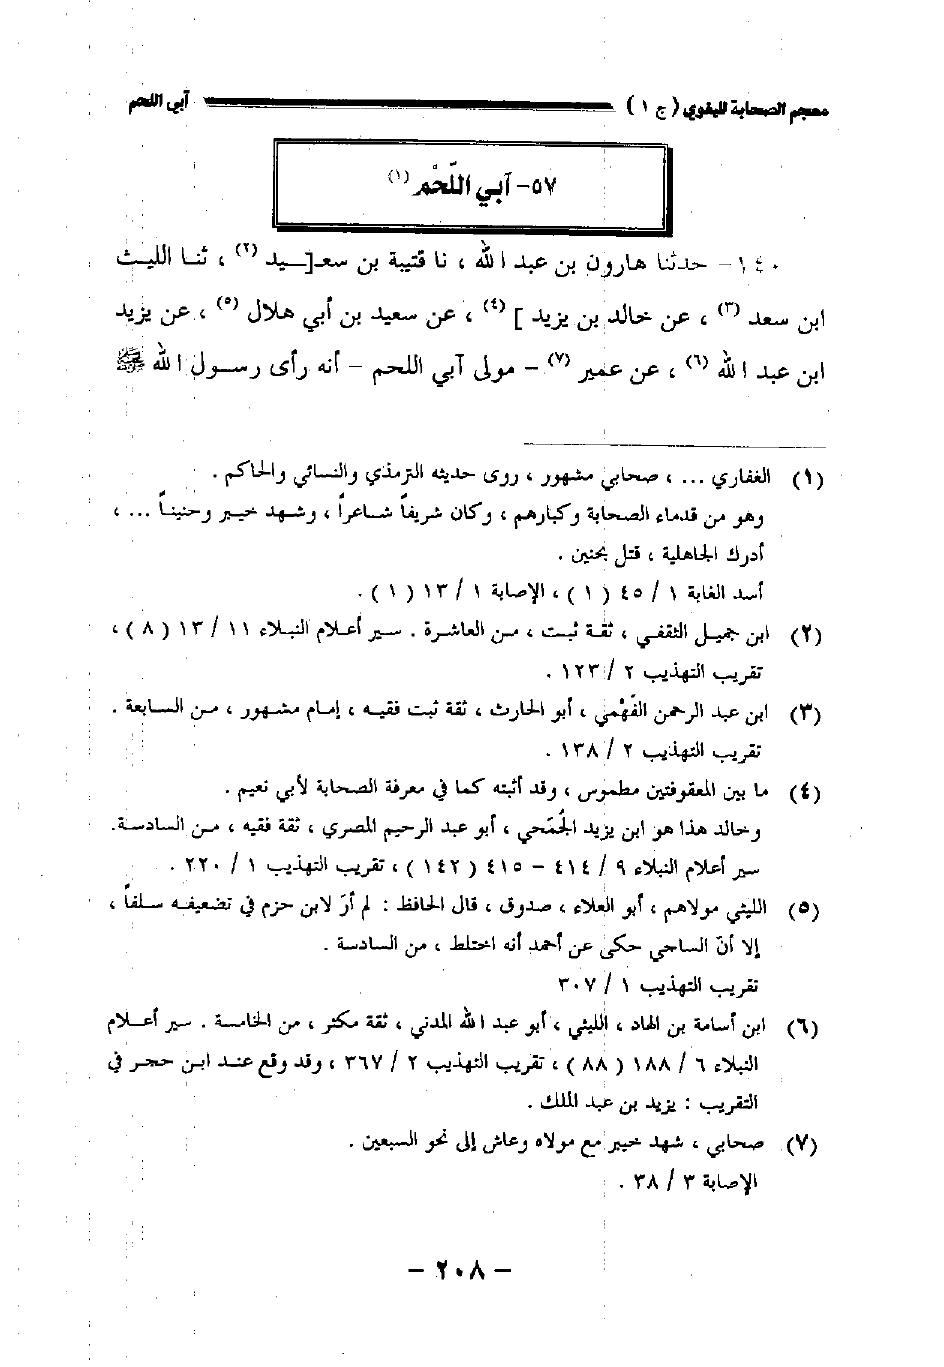 معجم الصحابة للبغوي ( ج ١ ) آبي اللحم
٥٧- آبي اللَّحْم (١)
١٤٠- حدثنا هارون بن عبد الله ، نا قتيبة بن سعـ[ـيد (٢) ، ثنا الليث
ابن سعد (٣) ، عن خالد بن يزيد ] (٤) ، عن سعيد بن أبي هلال (٥) ، عن يزيد
ابن عبد الله (٦) ، عن عمير (٧) - مولى آبي اللحم - أنه رأى رسول الله ﷺ
(١) الغفاري ... ، صحابي مشهور ، روى حديثه الترمذي والنسائي والحاكم .
وهو من قدماء الصحابة وكبارهم ، وكان شريفاً شاعراً ، وشهد خيبر وحنيناً ... ،
أدرك الجاهلية ، قتل بحنين .
أسد الغابة ١ / ٤٥ ( ١ ) ، الإصابة ١ / ١٣ ( ١ ) .
(٢) ابن جميل الثقفي ، ثقة ثبت ، من العاشرة . سير أعلام النبلاء ١١ / ١٣ ( ٨ ) ،
تقريب التهذيب ٢ / ١٢٣ .
(٣) ابن عبد الرحمن الفَهْمي ، أبو الحارث ، ثقة ثبت فقيه ، إمام مشهور ، من السابعة .
تقريب التهذيب ٢ / ١٣٨ .
(٤) ما بين المعقوفتين مطموس ، وقد أثبته كما في معرفة الصحابة لأبي نعيم .
وخالد هذا هو ابن يزيد الجُمَحي ، أبو عبد الرحيم المصري ، ثقة فقيه ، من السادسة.
سير أعلام النبلاء ٩ / ٤١٤ - ٤١٥ ( ١٤٢ ) ، تقريب التهذيب ١ / ٢٢٠ .
(٥) الليثي مولاهم ، أبو العلاء ، صدوق ، قال الحافظ : لم أرَ لابن حزم في تضعيفه سلفاً ،
إلا أنّ الساجي حكى عن أحمد أنه اختلط ، من السادسة .
تقريب التهذيب ١ / ٣٠٧
(٦) ابن أسامة بن الهاد ، الليثي ، أبو عبد الله المدني ، ثقة مكثر ، من الخامسة . سير أعلام
النبلاء ٦ / ١٨٨ ( ٨٨ ) ، تقريب التهذيب ٢ / ٣٦٧ ، وقد وقع عند ابن حجر في
التقريب : يزيد بن عبد الملك .
(٧) صحابي ، شهد خيبر مع مولاه وعاش إلى نحو السبعين .
الإصابة ٣ / ٣٨ .
- ٢٠٨ -